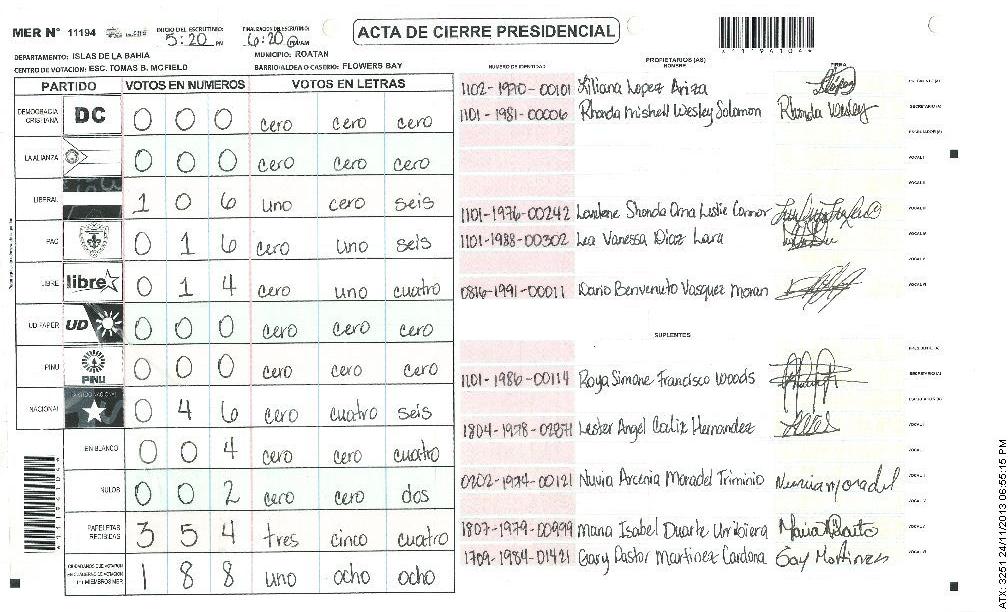 MER Nº 11194 INICIO DEL ESCRUTINIO: 5:20 PM FINALIZACION ESCRUTINIO: 6:20 PM/AM
ACTA DE CIERRE PRESIDENCIAL
DEPARTAMENTO: ISLAS DE LA BAHIA MUNICIPIO: ROATAN
CENTRO DE VOTACION: ESC. TOMAS B. MCFIELD BARRIO/ALDEA O CASERIO: FLOWERS BAY
PARTIDO VOTOS EN NUMEROS VOTOS EN LETRAS
DEMOCRACIA CRISTIANA DC 0 0 0 cero cero cero
LA ALIANZA 0 0 0 cero cero cero
LIBERAL 1 0 6 uno cero seis
PAC 0 1 6 cero uno seis
LIBRE libre 0 1 4 cero uno cuatro
UD FAPER UD 0 0 0 cero cero cero
PINU PINU 0 0 0 cero cero cero
NACIONAL 0 4 6 cero cuatro seis
EN BLANCO 0 0 4 cero cero cuatro
NULOS 0 0 2 cero cero dos
PAPELETAS RECIBIDAS 3 5 4 tres cinco cuatro
CIUDADANOS QUE VOTARON 1 8 8 uno ocho ocho
NUMERO DE IDENTIDAD PROPIETARIOS (AS) NOMBRE FIRMA
1102-1970-00101 Liliana Lopez Ariza
1101-1981-00006 Rhonda Mishell Wesley Solomon Rhonda Wesley
1101-1976-00242 Shonda Orna Leslie Connor
1101-1988-00302 Lea Vanessa Diaz Lara
0816-1991-00011 Dario Benvenuto Vasquez Moran
SUPLENTES
1101-1986-00114 Roya Simone Francisco Woods
1804-1978- Lester Angel Calix Hernandez
0202-1974-00121 Nuvia Arcenia Moradel Triminio Nuvia moradel
1807-1979-00999 Maria Isabel Duarte
1709-1984-01421 Gary Pastor Martinez Cardona Gay Martinez
ATX: 3251 24/11/2013 06:55:15 PM